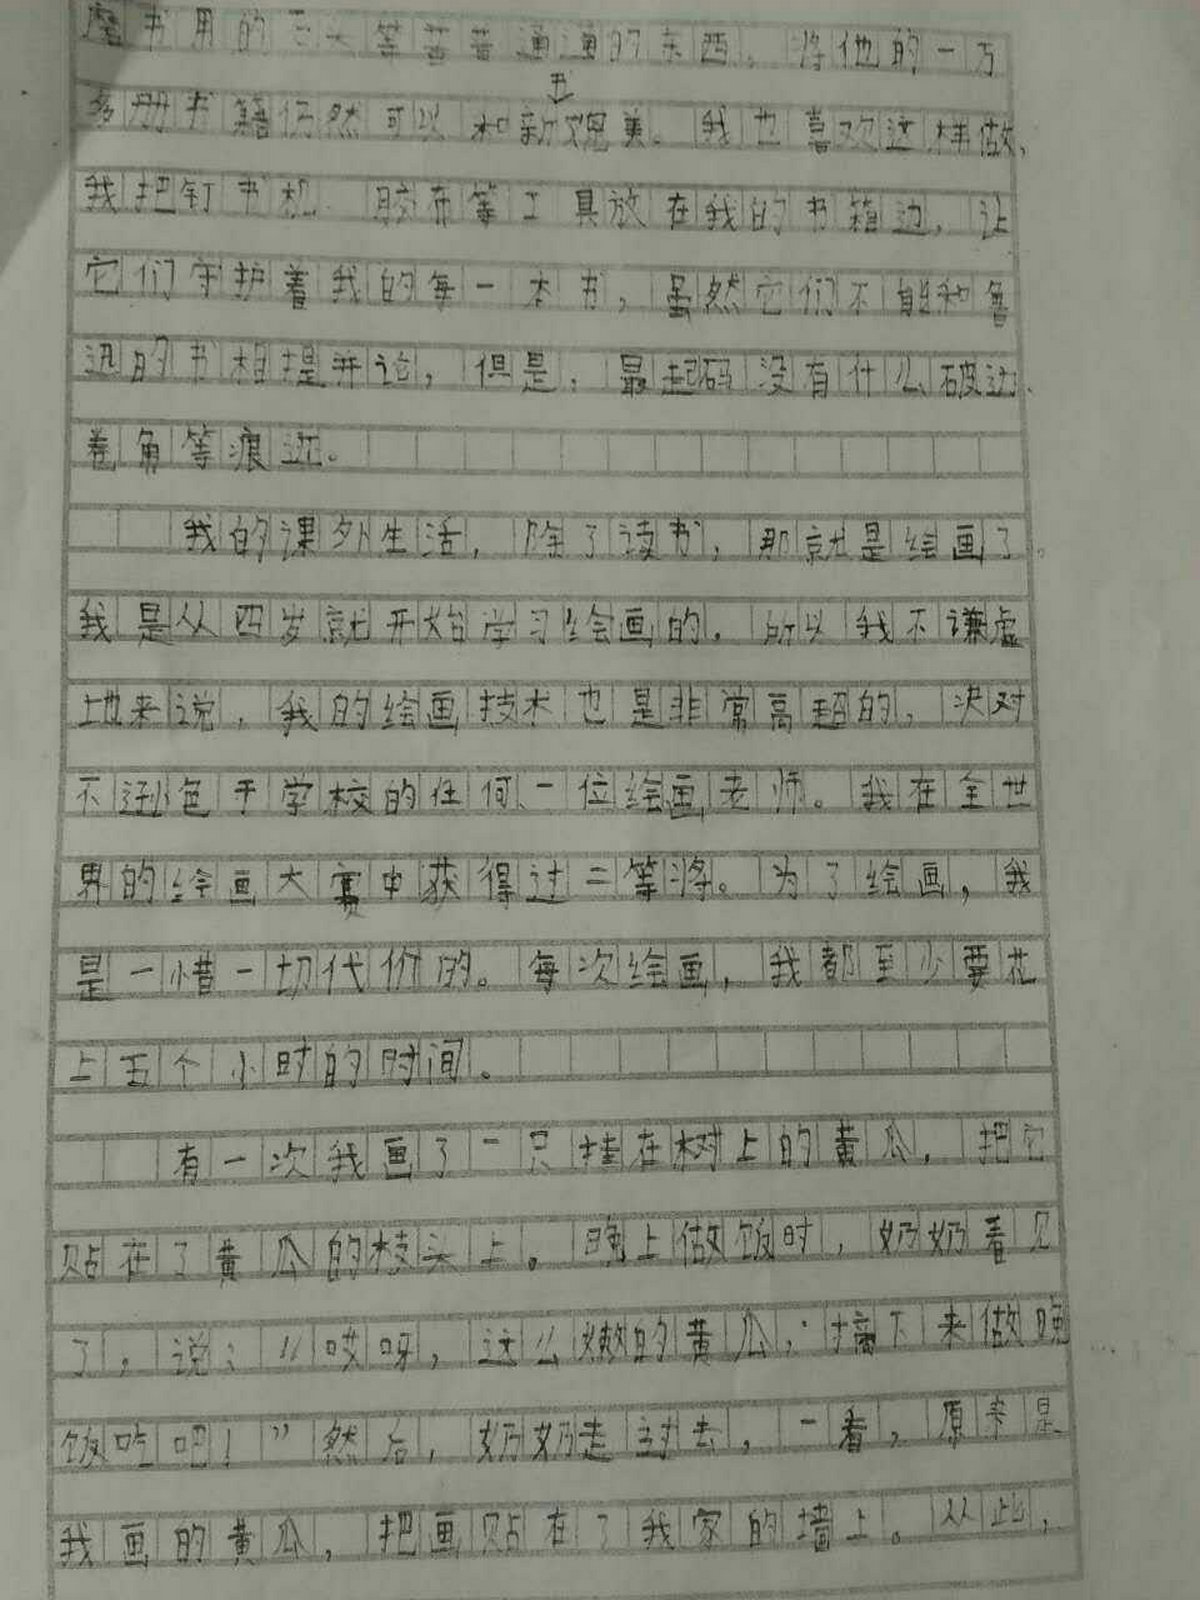 磨书用的石头等普普通通的东西，将他的一万
多册书籍仍然可以和新书媲美。我也喜欢这样做，
我把钉书机、胶布等工具放在我的书箱边，让
它们守护着我的每一本书，虽然它们不能和鲁
迅的书相提并论，但是，最起码没有什么破边、
卷角等痕迹。
我的课外生活，除了读书，那就是绘画了。
我是从四岁就开始学习绘画的，所以我不谦虚
地来说，我的绘画技术也是非常高超的，决对
不逊色于学校的任何一位绘画老师。我在全世
界的绘画大赛中获得过二等将。为了绘画，我
是一惜一切代价的。每次绘画，我都至少要花
上五个小时的时间。
有一次我画了一只挂在树上的黄瓜，把它
贴在了黄瓜的枝头上。晚上做饭时，奶奶看见
了，说：“哎呀，这么嫩的黄瓜，摘下来做晚
饭吃吧！”然后，奶奶走过去，一看，原来是
我画的黄瓜，把画贴在了我家的墙上。从此，